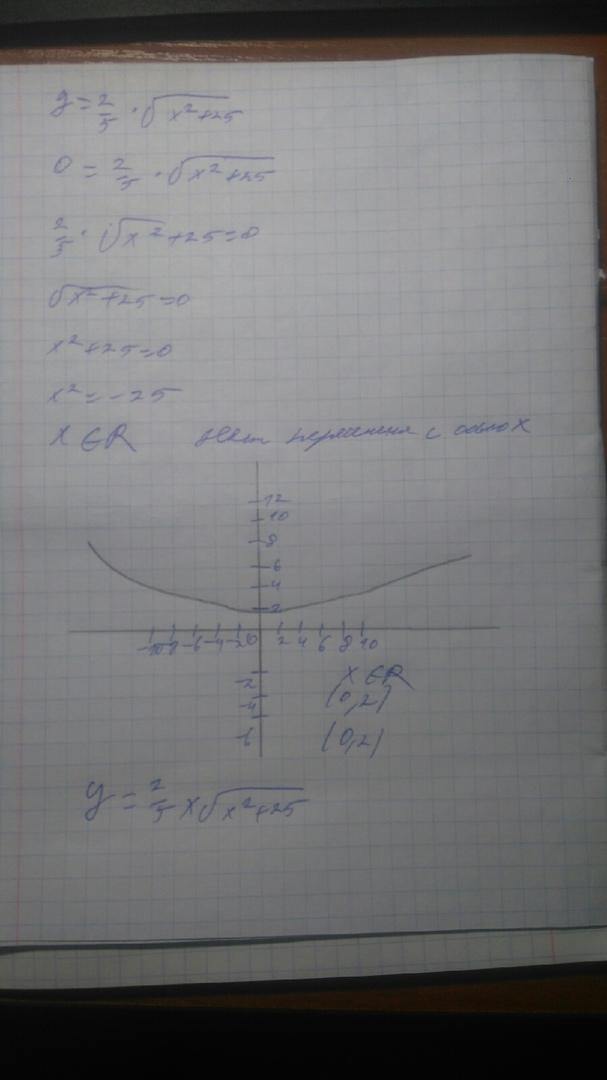 y = 2/5 · √x²+25
0 = 2/5 · √x²+25
2/5 · √x²+25=0
√x²+25=0
x²+25=0
x²=-25
x∈R с осью x
12
10
8
6
4
2
-10 -8 -6 -4 -2 0 2 4 6 8 10
-2
x∈R
-4 (0,2)
-6 (0,2)
y = 2/5 x √x²+25